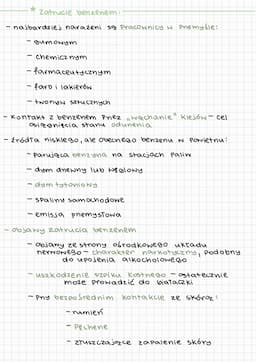 * Zatrucie benzenem:
- najbardziej narażeni są pracownicy w przemyśle:
- gumowym
- chemicznym
- farmaceutycznym
- farb i lakierów
- tworzyw sztucznych
- kontakt z benzenem przez „wąchanie" klejów – cel
osiągnięcia stanu odurzenia
- źródła niskiego, ale obecnego benzenu w powietrzu:
- parująca benzyna na stacjach paliw
- dym drewny lub węglowy
- dym tytoniowy
- spaliny samochodowe
- emisja przemysłowa
- objawy zatrucia benzenem
- objawy ze strony ośrodkowego układu
nerwowego – charakter narkotyczny, podobny
do upojenia alkoholowego
- uszkodzenie szpiku kostnego – ostatecznie
może prowadzić do białaczki
- przy bezpośrednim kontakcie ze skórą:
- rumień
- pęcherze
- złuszczające zapalenie skóry